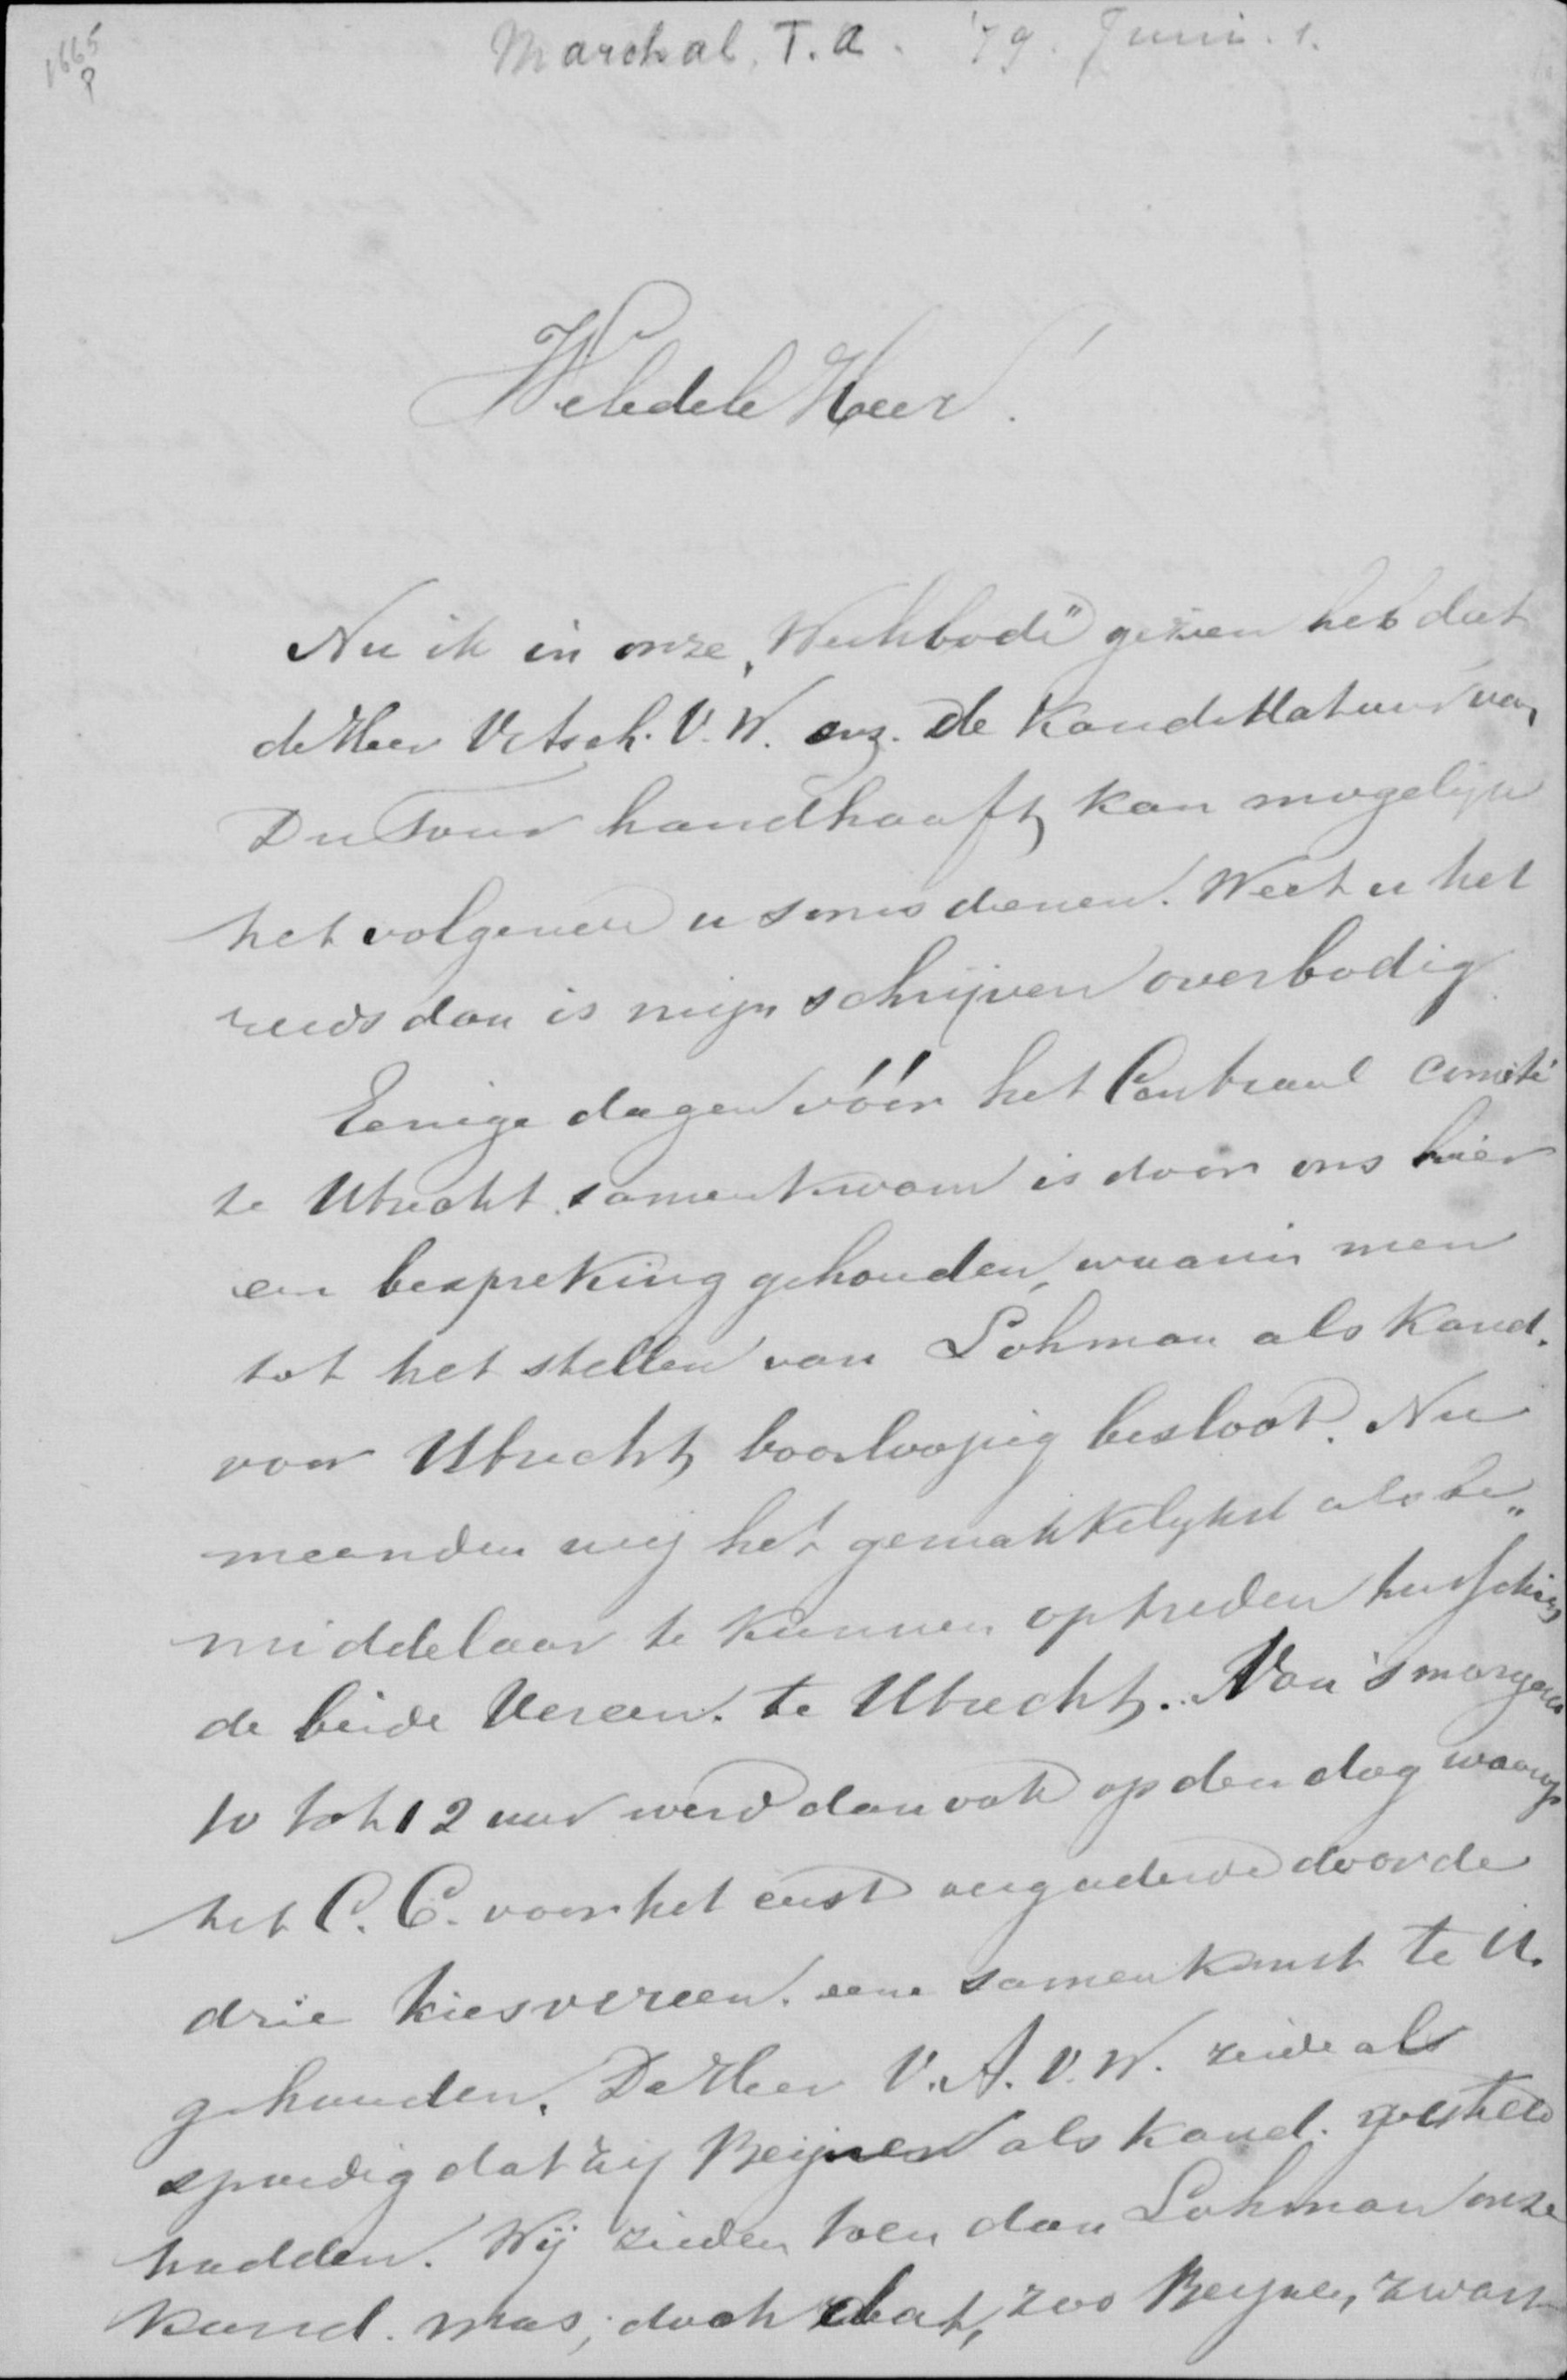 1665
P
Marchal. T. A. '79. Juni. 1.
Weledele Heer!
Nu ik in onze „Weekbode" gezien heb dat
de Heer V. Asch. V. W. enz. de Kandidatuur van
Du Tour handhaaft, kan mogelijk
het volgende u soms dienen. Weet u het
reeds dan is mijn schrijven overbodig
Eenige dagen vóór het Centraal Comité
te Utrecht samenkwam is door ons hier
een bespreking gehouden, waarin men
tot het stellen van Lohman als Kand.
voor Utrecht, voorloopig besloot. Nu
meenden wij het gemakkelykst als be„
middelaar te kunnen optreden tusschen
de beide Vereen. te Utrecht. Van 's morgens
10 tot 12 uur werd dan ook op den dag waarop
het C. C. voor het eerst vergaderde door de
drie Kiesvereen. eene samenkomst te U.
gehouden. De Heer V. A. V. W. zeide al
spoedig dat zij Beijnen als Kand. gesteld
hadden. Wij zeiden toen dan Lohman onze
Kand. was; doch dat, zoo Beynen, zwart